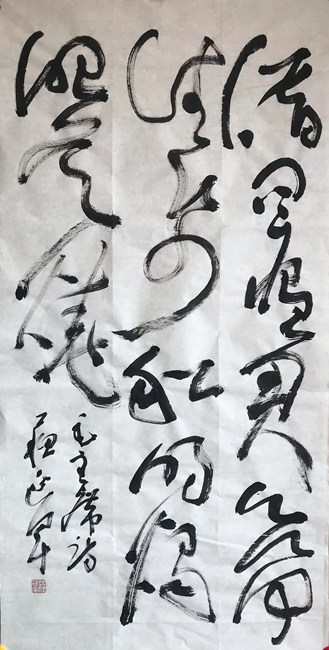 借问瘟君欲何
往纸船明烛
照天烧
毛主席诗